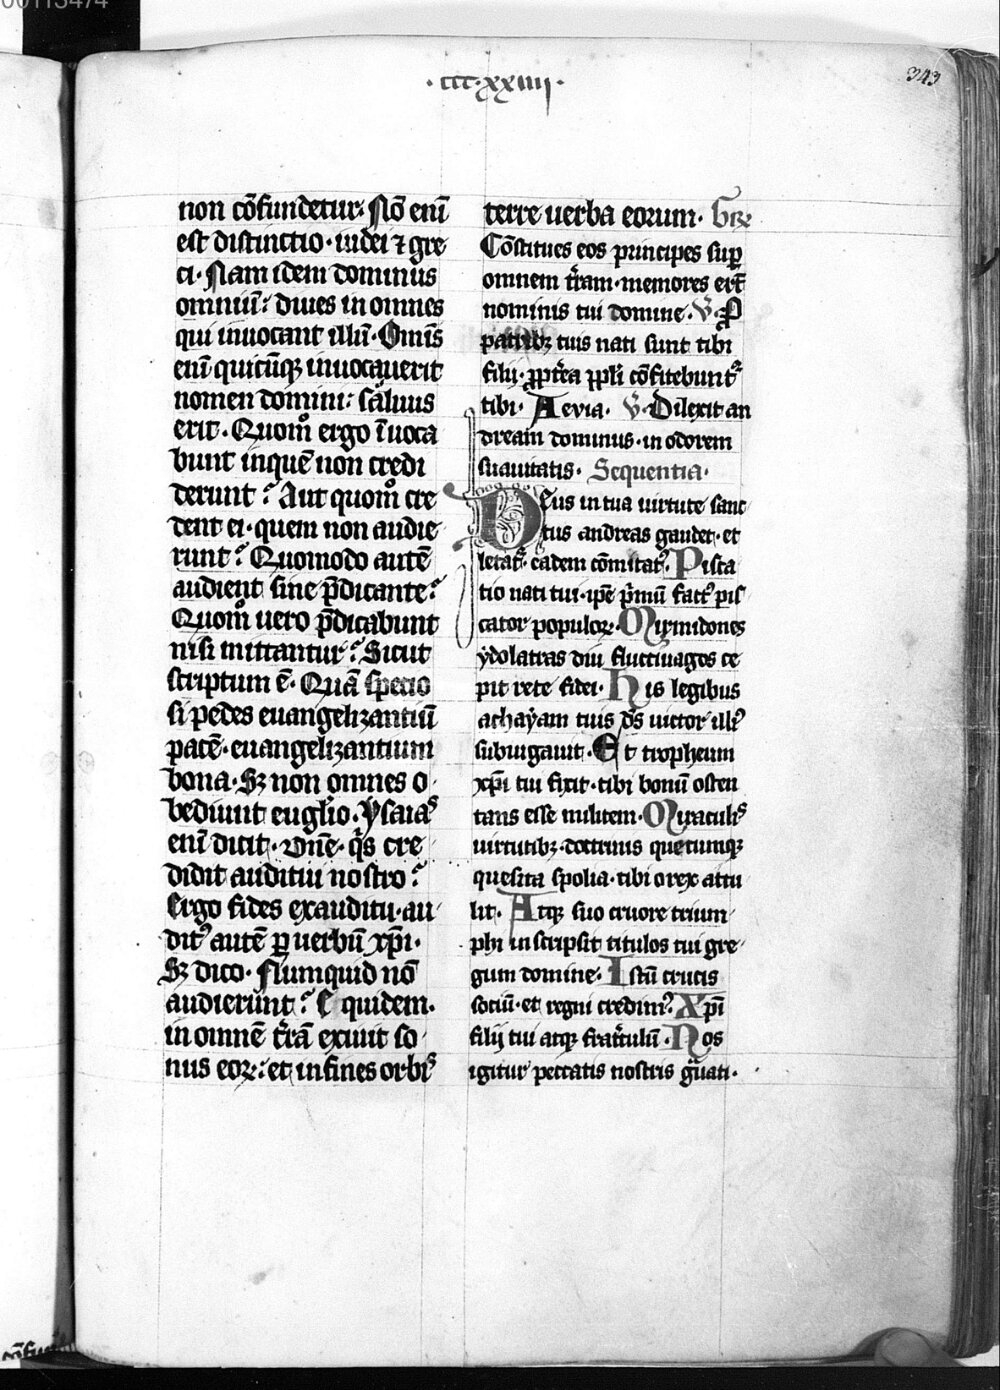 00113474
·ccc·xxiiii·
343
non cōfundetur· Nō eni᷑
est distinctio· iudei ⁊ gre
ci· Nam idem dominus
omniū: diues in omnes
qui inuocant illū· Omīs
enī quicūqꝫ inuocauerit
nomen domini: saluus
erit· Quomͦ ergo īuoca
bunt inquē non credi
derunt? Aut quomͦ cre
dent ei· quem non audie
runt? Quomodo autē
audient sine p̄dicante?
Quomͦ uero p̄dicabunt
nisi mittantur? Sicut
scriptum ē· Quā specio
si pedes euangelizantiū
pacē· euangelizantium
bona· Sꝫ non omnes o
bediunt euglio· Ysaias
enī dicit· Dn̄e· qͥs cre
didit auditui nostro?
Ergo fides exauditu· au
ditꝰ autē ꝑ uerbū xp̄i·
Sꝫ dico· Numquid nō
audierunt? Et quidem·
in omnē t̄rā exiuit so
nus eoꝝ: et in fines orbiˢ
terre uerba eorum· Grͣ
Cōstitues eos principes suꝑ
omnem t̄ram· memores erūt
nominis tui domine· V· P
patribꝫ tuis nati sunt tibi
filij· ꝓpt̄ea ppl̄i cōfitebuntᷣ
tibi· Aeuia· V· Dilexit an
dream dominus· in odorem
suauitatis· Sequentia·
Deus in tua uirtute sanc
tus andreas gaudet· et
letatᷣ· eadem cōmitatᷣ· Pisca
tio nati tui· ip̄e p̄mū factꝰ pis
cator populoꝝ· Mirmidones
ydolatras diu fluctiuagos ce
pit rete fidei· His legibus
achayam tuis dˢ uictor illeˀ
subiugauit· Et tropheum
xp̄i tui fixit· tibi bonū osten
tans esse militem· Miraculis
uirtutibꝫ· doctrinis quecumqꝫ
quesita spolia· tibi o rex attu
lit· Atqꝫ suo cruore trium
phi inscripsit titulos tui gre
gum domine· Istū crucis
sociū· et regni credimꝰ· Xp̄i
filij tui atqꝫ frat̄culū· Nos
igitur peccatis nostris gͣuati·